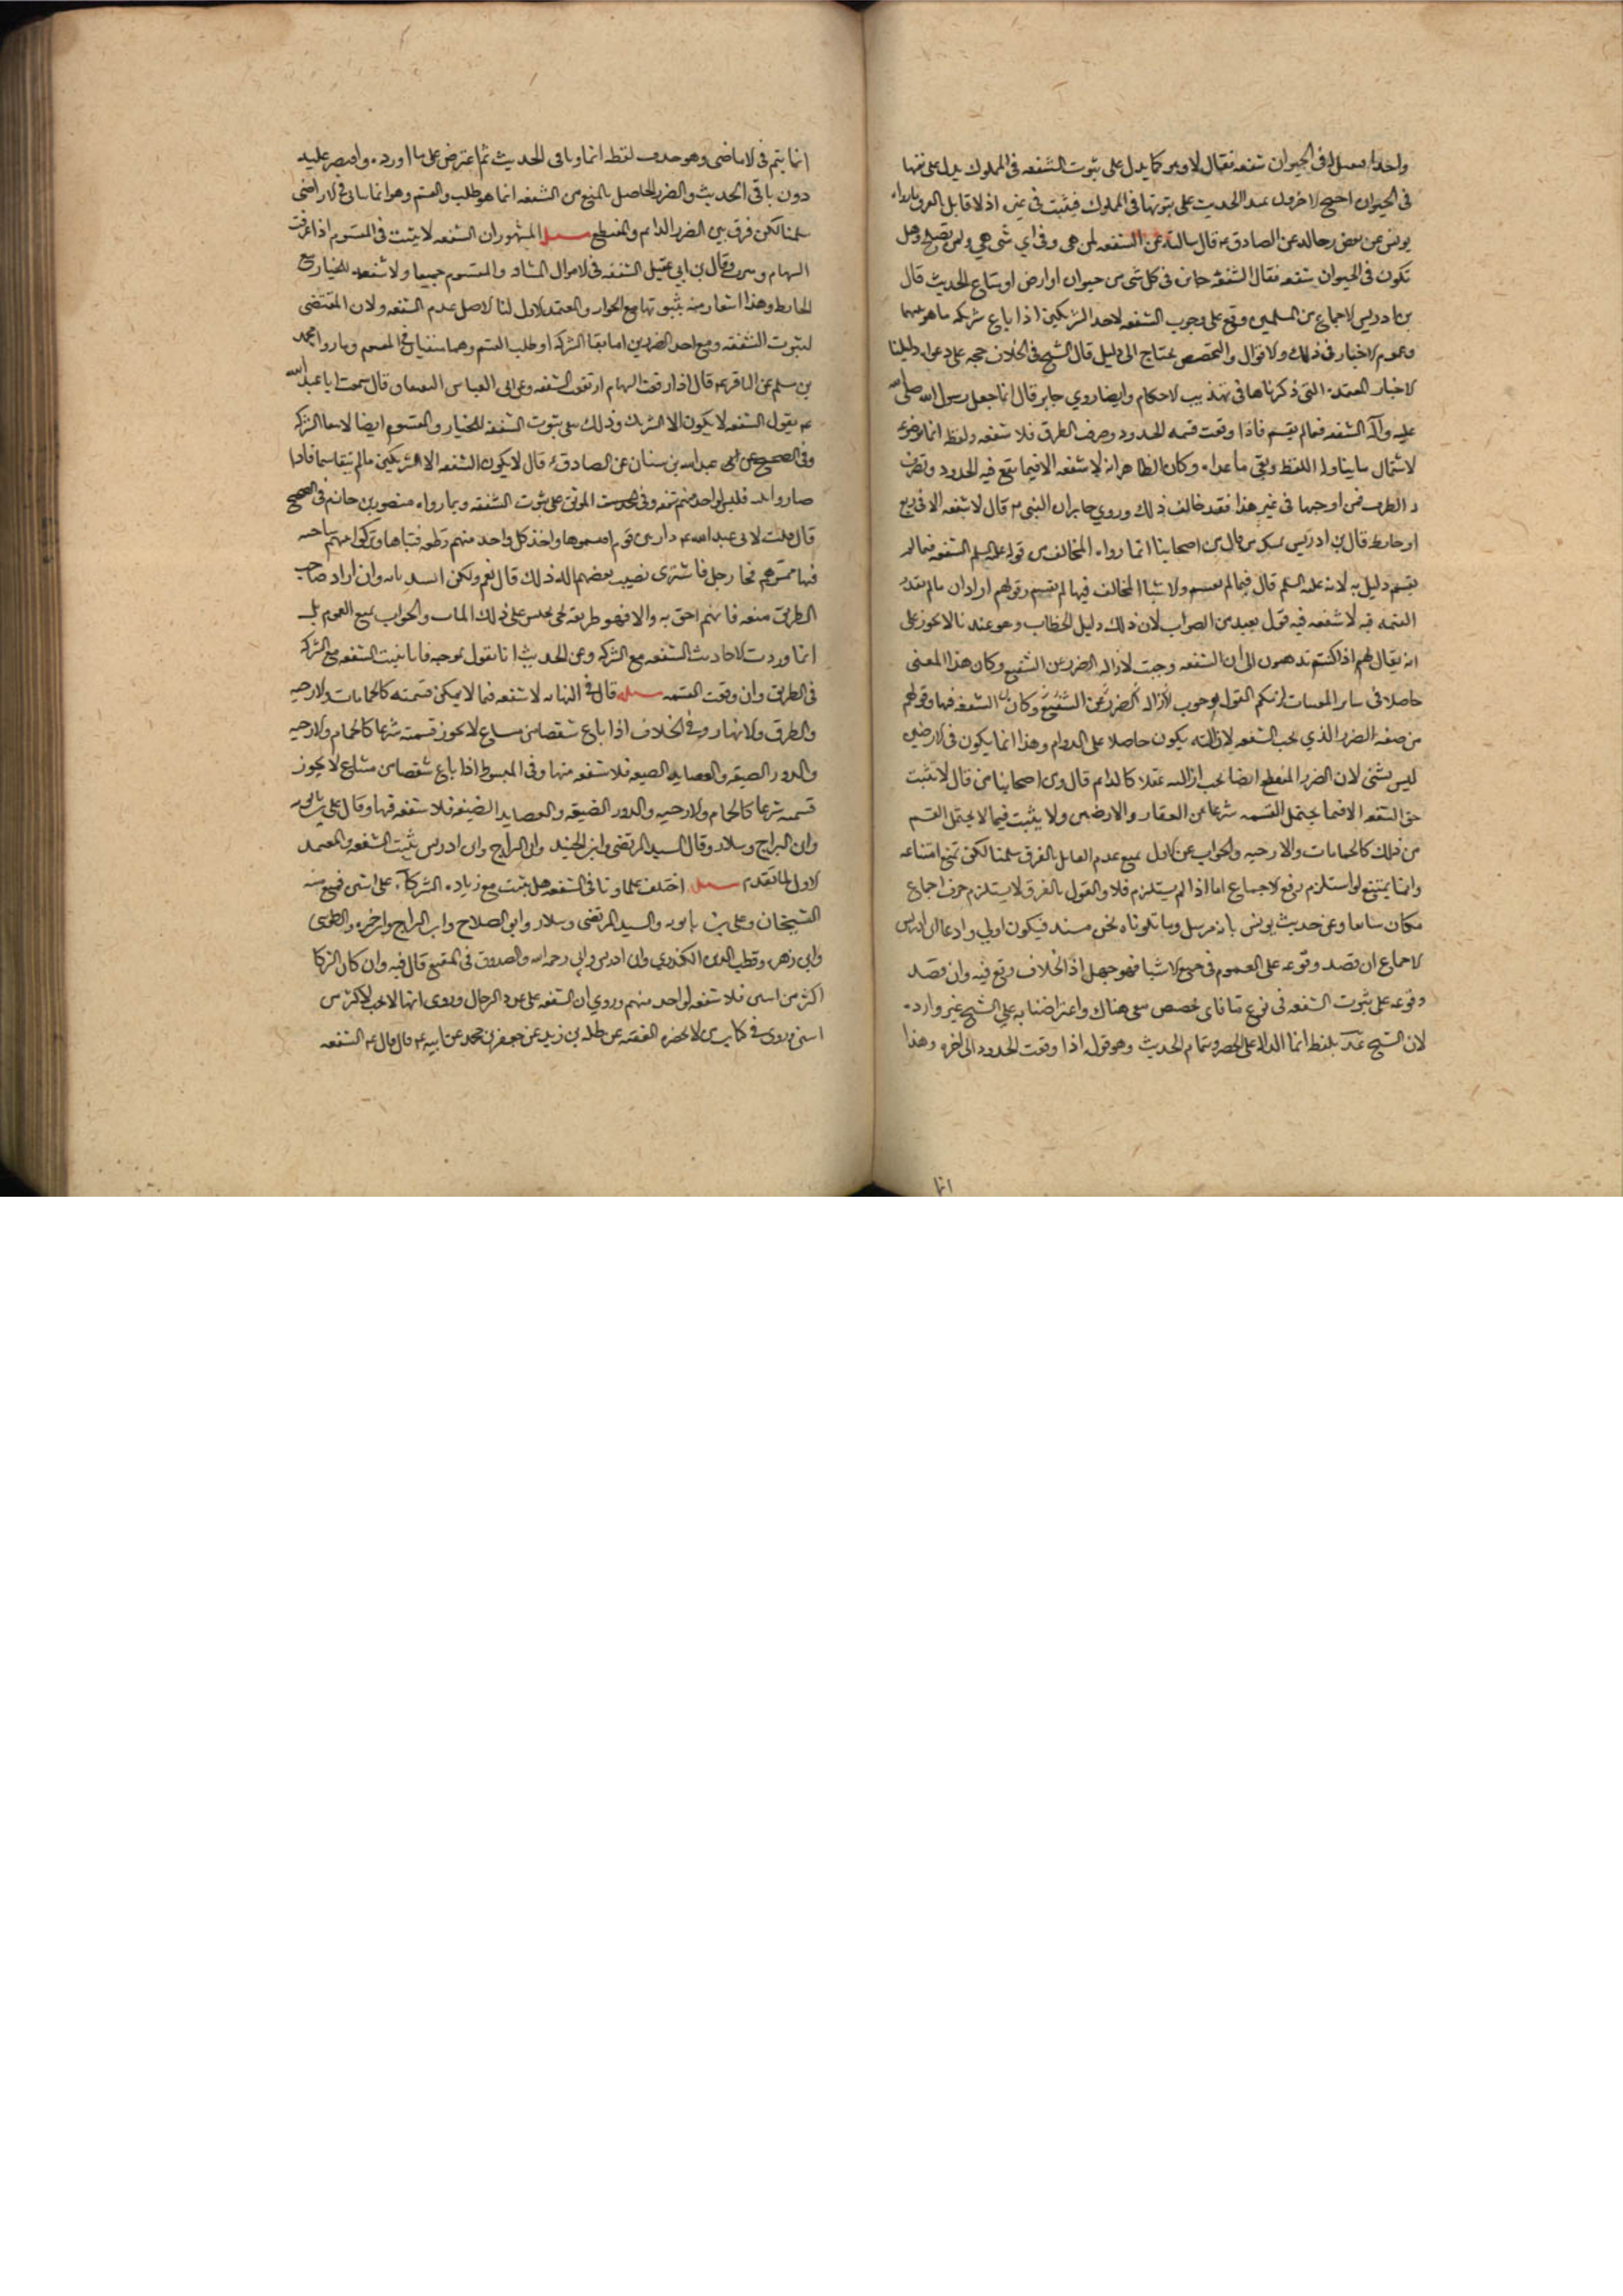 واحدا فصل له في الحيوان شفعه فقال لا وهو كما يدل على ثبوت الشفعه في المملوك يدل على نفيها
في الحيوان احتج الاخرون بهذا الحديث على ثبوتها في المملوك فيثبت في غيره اذ لا قايل بالفرق بما رواه
يونس عن بعض رجاله عن الصادق ع قال سالته عن الشفعه لمن هي وفي اي شي هي ولمن تصلح وهل
تكون في الحيوان شفعه فقال الشفعه جايزه في كل شي من حيوان او ارض او متاع الحديث قال
بن ادريس الاجماع من المسلمين وقع على وجوب الشفعه لاحد الشريكين اذا باع شريكه ما هو بينهما
وعموم الاخبار في ذلك والاقوال والتخصيص يحتاج الى دليل قال الشيخ في الخلاف حجه على دعواه دليلنا
الاخبار المعتمده التي ذكرناها في تهذيب الاحكام وايضا روي جابر قال انما جعل رسول الله صلى الله
عليه وآله الشفعه فيما لم يقسم فاذا وقعت قسمه الحدود وصرف الطرق فلا شفعه ولفظ انما موضوعه
لاشتمال ما يتناوله اللفظ ونفي ما عداه وكان الظاهر انه لا شفعه الا فيما يقع فيه الحدود وتصرف
له الطرق فمن اوجبها في غير هذا فقد خالف ذلك وروي جابر ان النبي ص قال لا شفعه الا في ربع
او حايط قال بن ادريس من قال من اصحابنا انما رواه المخالف من قوله عليه السلم الشفعه فيما لم
يقسم دليل به لانه عليه السلم قال فيما لم يقسم والاشيا المخالف فيها لم يقسم وقولهم اراد ان ما لم يقدر
القسمه فيه لا شفعه فيه قول بعيد من الصواب لان ذلك دليل الخطاب وهو عندنا لا يجوز على
انه يقال لهم اذا كنتم تذهبون الى ان الشفعه وجبت لازاله الضرر عن الشفيع وكان هذا المعنى
حاصلا في ساير المبيعات لزمكم القول بوجوب لازاله الضرر عن الشفيع وكان الشفعه فيها وقولهم
من صفه الضرر الذي تجب الشفعه لازالته يكون حاصلا على الدوام وهذا انما يكون في الارضين
ليس بشي لان الضرر المنقطع ايضا يجب ازالته عقلا كالدايم قال ومن اصحابنا من قال لا تثبت
حق الشفعه الا فيما يحتمل القسمه شرعا من العقار والارضين ولا يثبت فيما لا يحتمل القسم
من ذلك كالحمامات والارحيه والجواب عن الاول بمنع عدم القايل بالفرق سلمنا لكن نمنع امتناعه
وانما يمتنع لو استلزم رفع الاجماع اما اذا لم يستلزم فلا والقول بالفرق لا يستلزم خرق اجماع
فكان سايغا وعن حديث يونس بانه مرسل وما تلوناه نحن مسند فيكون اولى وادعا ابن ادريس
الاجماع ان قصد وقوعه على العموم في جميع الاشيا فهو جهل اذ الخلاف وقع فيه وان قصد
وقوعه على ثبوت الشفعه في نوع ما فاي مخصص بقي هناك واعتراضنا به على الشيخ غير وارد
لان الشيخ تمسك بلفظ انما الداله على الحصر وبتمام الحديث وهو قوله اذا وقعت الحدود الى اخره وهذا
انما
انما يتم في الاماضي وهو حذف لفظه انما وباقي الحديث ثم اعترض على ما اورده واقتصر عليه
دون باقي الحديث والضرر الحاصل بالمنع من الشفعه انما هو طلب القسم وهو انما يتاتى في الاراضي
سلمنا لكن فرق بين الضرر الدايم والمنقطع مسله المشهور ان الشفعه لا يثبت في المقسوم اذا عرفت
السهام وميزت وقال بن ابي عقيل الشفعه في الاموال المشاعه والمقسوم جميعا ولا شفعه للجار مع
الحايط وهذا اشعار منه بثبوتها مع الجوار والمعتمد الاول لنا الاصل عدم الشفعه ولان المقتضى
لثبوت الشفعه دفع احد الضررين اما بقا الشركه او طلب القسم وهما منتفيان في المقسوم وما رواه محمد
بن مسلم عن الباقر ع قال اذا وقعت السهام ارتفعت الشفعه وعن ابي العباس البقباق قال سمعت ابا عبد الله
ع يقول الشفعه لا يكون الا لشريك وذلك ينفي ثبوت الشفعه للجار والمقسوم ايضا لانتفا الشركه
وفي الصحيح عن عبد الله بن سنان عن الصادق ع قال لا يكون الشفعه الا الشريكين ما لم يتقاسما فاذا
صاروا ثلثه فليس لواحد منهم شفعه وفي الحديث الموثق على ثبوت الشفعه وبما رواه منصور بن حازم في الصحيح
قال قلت لابي عبد الله ع دار بين قوم اقتسموها واخذ كل واحد منهم قطعه فبناها وتركوا بينهم ساحه
فيها ممرهم فجا رجل فاشترى نصيب بعضهم اله ذلك قال نعم ولكن يسد بابه وان اراد صاحب
الطريق منعه فانهم احق به والا فهو طريقه يجي يجلس على ذلك الباب والجواب بمنع العموم بل
انما وردت الاحاديث الشفعه مع الشركه وعن الحديث انا نقول بموجبه فانا نثبت الشفعه مع الشركه
في الطريق وان وقعت القسمه مسله قال في النهايه لا شفعه فيما لا يمكن قسمته كالحمامات والارحيه
والطرق والانهار وفي الخلاف اذا باع شقصا من مشاع لا يجوز قسمته شرعا كالحمام والارحيه
والدور الضيقه والعضايد الضيقه فلا شفعه فيها وفي المبسوط اذا باع شقصا من مشاع لا يجوز
قسمته شرعا كالحمام والارحيه والدور الضيقه والعضايد الضيقه فلا شفعه فيها وقال علي بن بابويه
وابن البراج وسلار وقال السيد المرتضى وابن الجنيد وابن البراج وابن ادريس يثبت الشفعه والمعتمد
الاول لما تقدم مسله اختلف علماونا في الشفعه هل يثبت مع زياده الشركاء على اثنين فمنع منه
الشيخان وعلي بن بابويه والسيد المرتضى وسلار وابو الصلاح وابن البراج وابن حمزه والطوسى
وابن زهره وقطب الدين الكيذري وابن ادريس وابي رحمه الله والصدوق في المقنع قال فيه وان كان الشركا
اكثر من اثنين فلا شفعه لواحد منهم وروي ان الشفعه على عدد الرجال وروى انها لا تجب لاكثر من
اثنين وروى في كتاب من لا يحضره الفقيه عن طلحه بن زيد عن جعفر بن محمد عن ابيه ع قال قال ع الشفعه